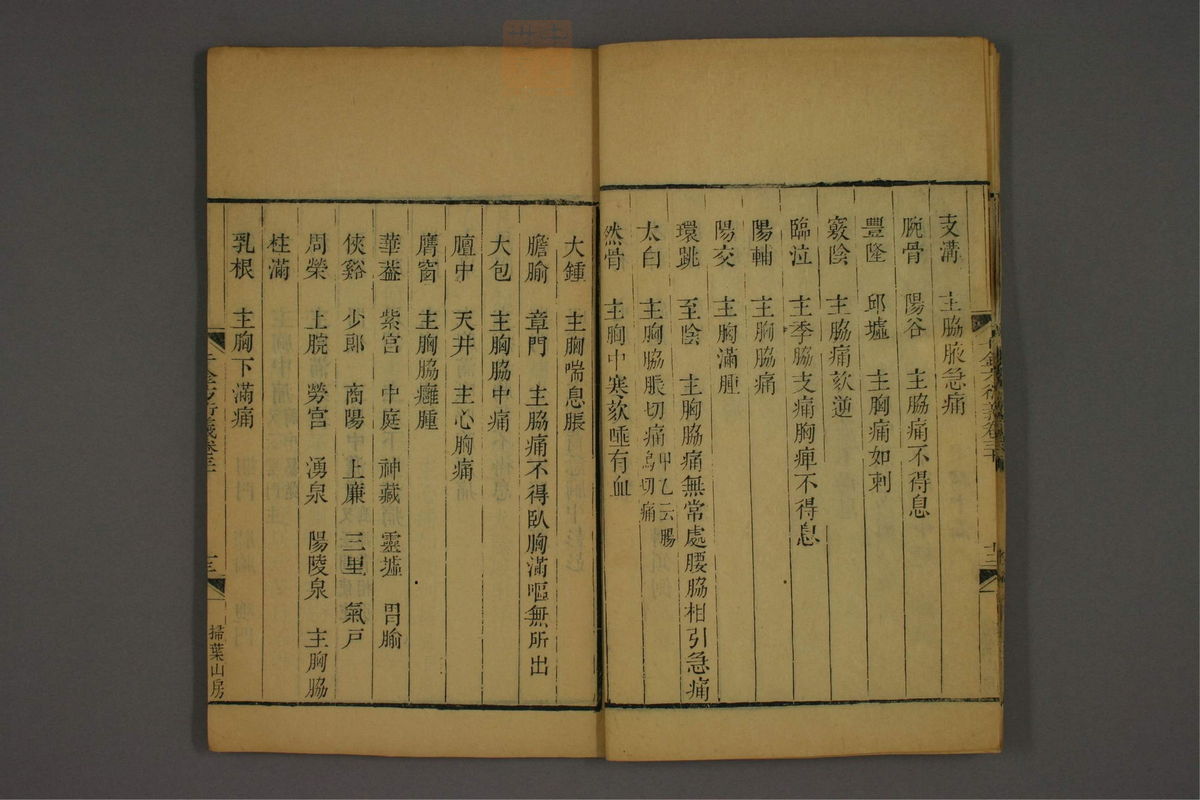 支溝　主脇腋急痛
腕骨　陽谷　主脇痛不得息
豐隆　邱墟　主胸痛如刺
竅陰　主脇痛欬逆
臨泣　主季脇支痛胸痺不得息
陽輔　主胸脇痛
陽交　主胸滿腫
環跳　至陰　主胸脇痛無常處腰脇相引急痛
太白　主胸脇脹切痛甲乙云腸鳴切痛
然骨　主胸中寒欬唾有血
大鍾　主胸喘息脹
膽腧　章門　主脇痛不得臥胸滿嘔無所出
大包　主胸脇中痛
膻中　天井　主心胸痛
膺窗　主胸脇癰腫
華蓋　紫宮　中庭　神藏　靈墟　胃腧
俠谿　少郎　商陽　上廉　三里　氣戶
周榮　上脘　勞宮　湧泉　陽陵泉　主胸脇
柱滿
乳根　主胸下滿痛
千金方衍義卷三十
十三
掃葉山房